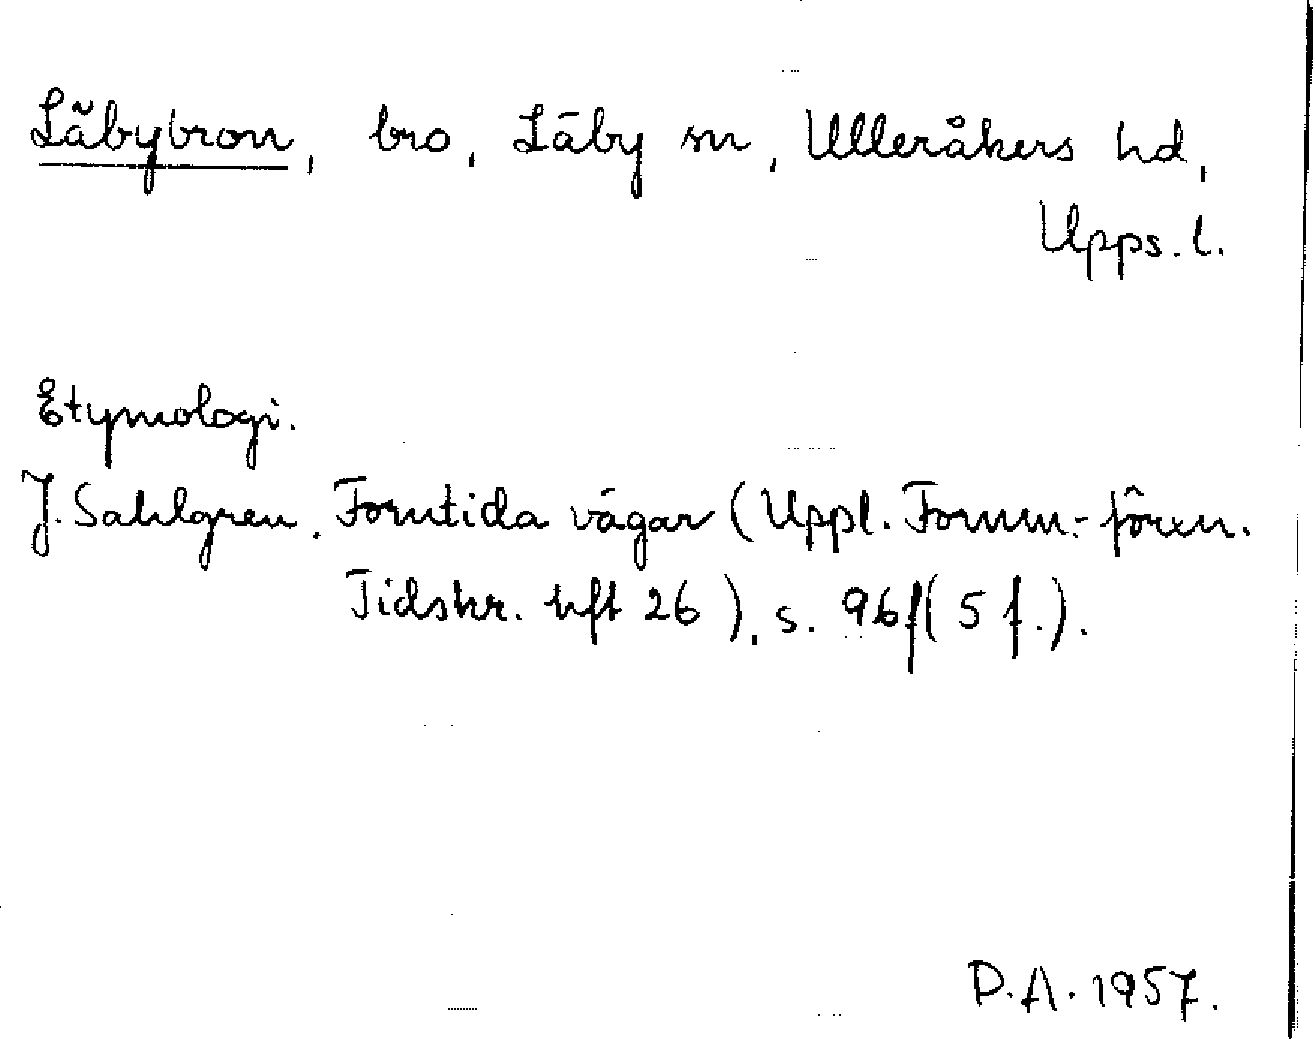 Läbybron, bro, Läby sn, Ulleråkers hd,
Upps. l.
Etymologi.
J. Sahlgren, Forntida vägar (Uppl. Fornm.-fören.
Tidskr. hft 26), s. 96f (5 f.).
P.A. 1957.